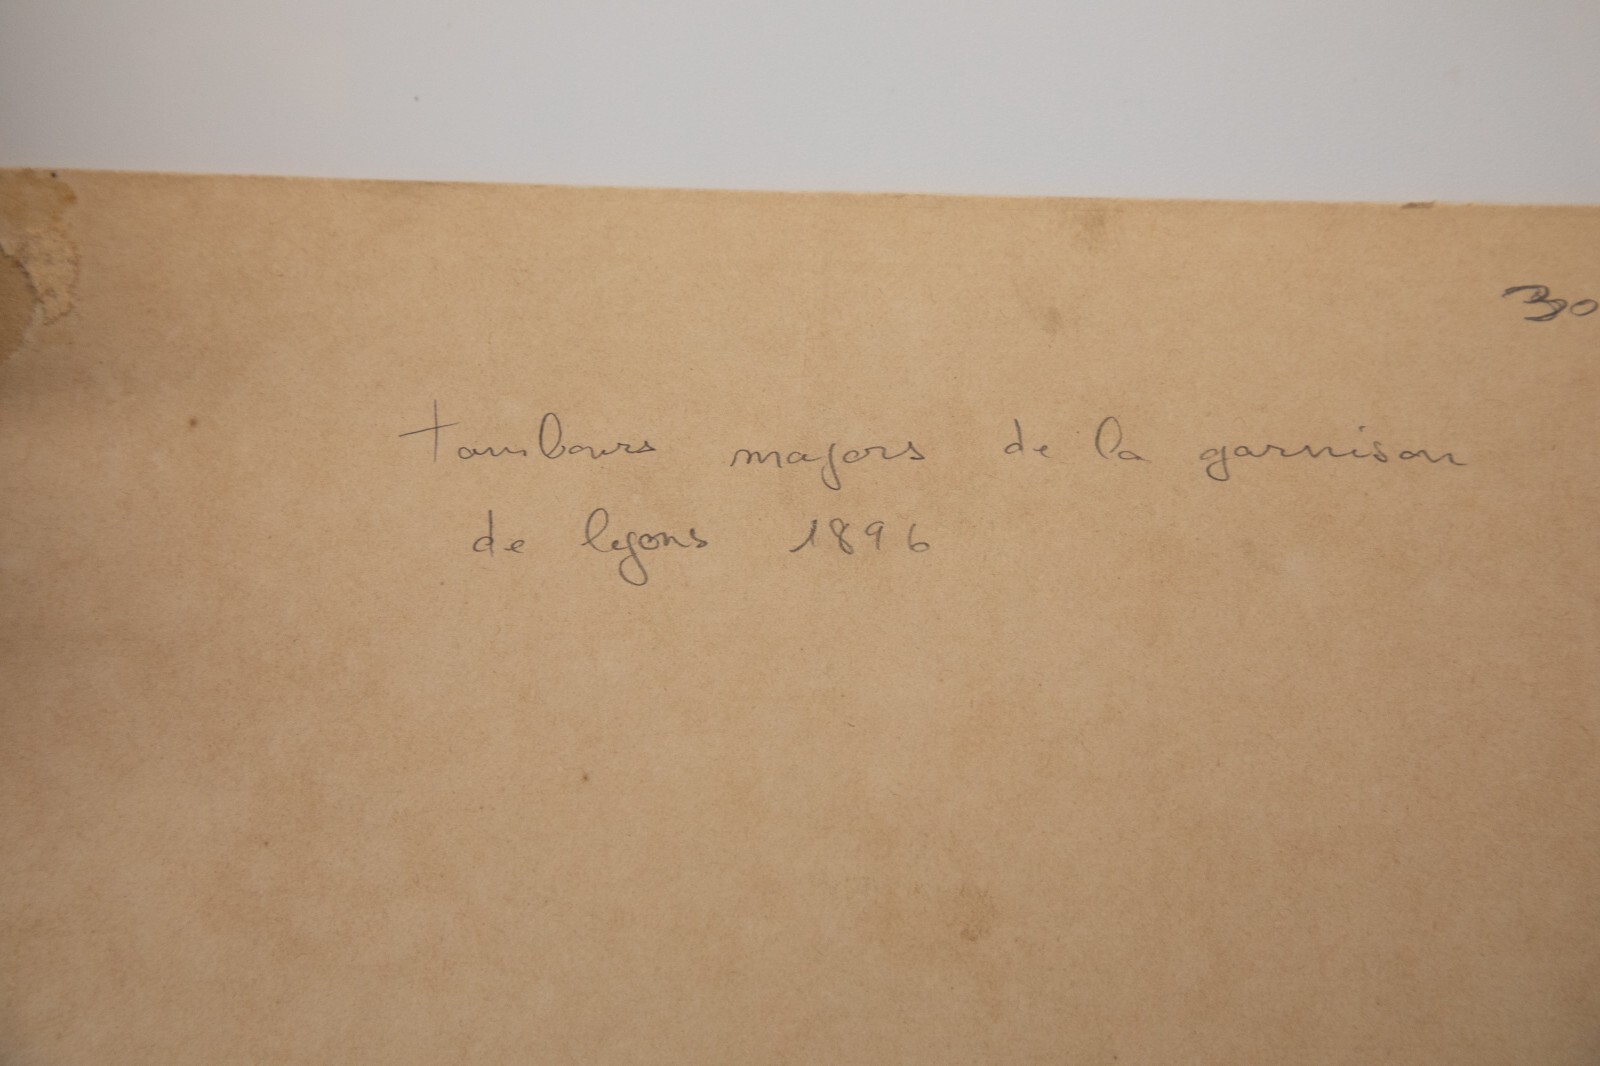 30
tambours majors de la garnison
de lyons 1896